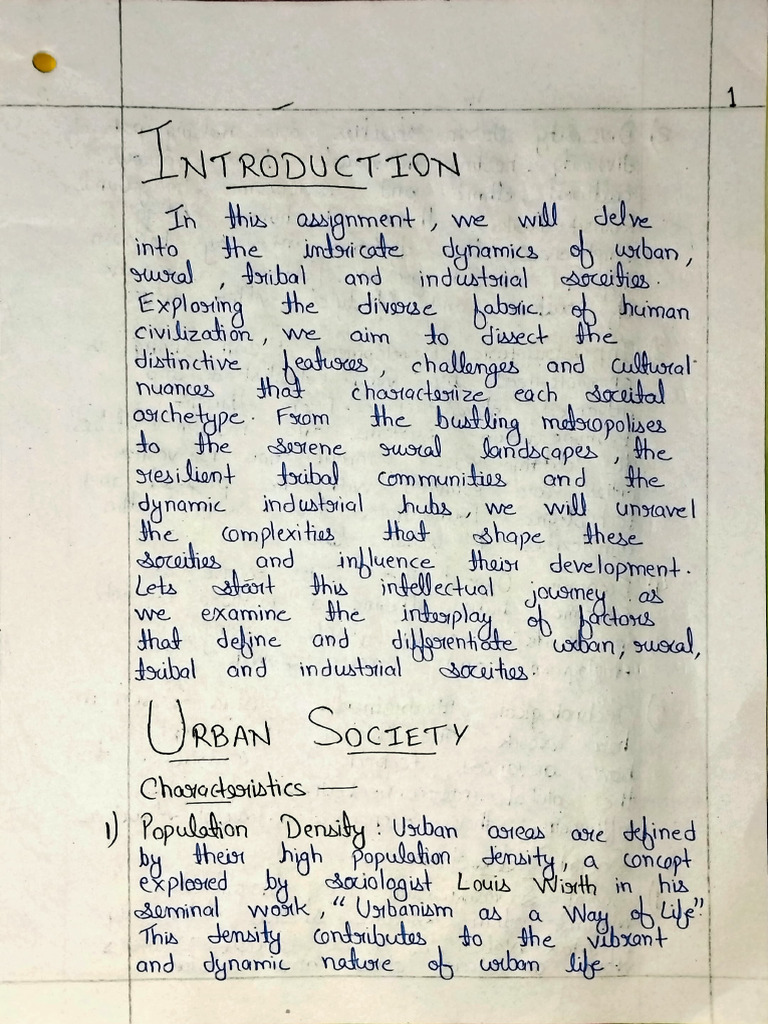 1
INTRODUCTION
In this assignment, we will delve
into the intricate dynamics of urban,
rural, tribal and industrial soceities.
Exploring the diverse fabric of human
civilization, we aim to dissect the
distinctive features, challenges and cultural
nuances that characterize each soceital
archetype. From the bustling metropolises
to the serene rural landscapes, the
resilient tribal communities and the
dynamic industrial hubs, we will unravel
the complexities that shape these
soceities and influence their development.
Lets start this intellectual journey as
we examine the interplay of factors
that define and differentiate urban, rural,
tribal and industrial soceities.
URBAN SOCIETY
Characteristics —
1) Population Density: Urban areas are defined
by their high population density, a concept
explored by sociologist Louis Wirth in his
seminal work, "Urbanism as a Way of Life".
This density contributes to the vibrant
and dynamic nature of urban life.